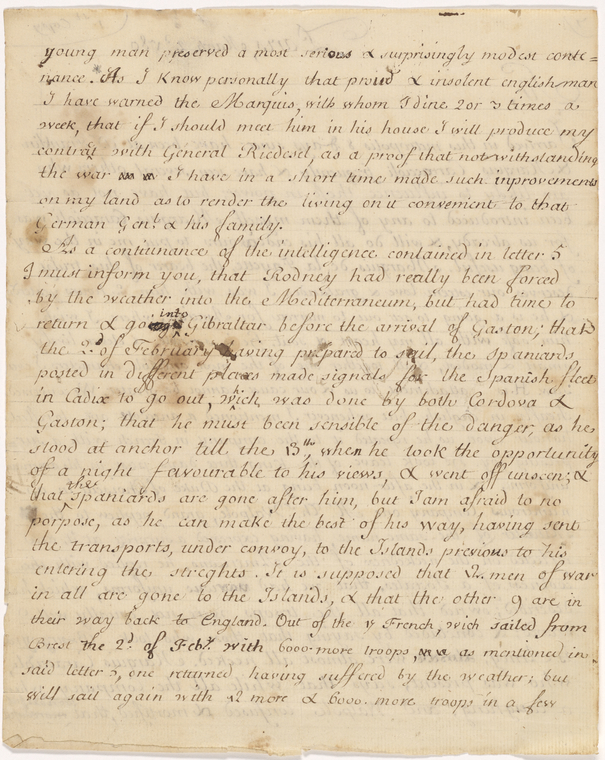 young man preserved a most serious & surprisingly modest conte=
nance. As I know personally that proud & insolent english man
I have warned the Marquis, with whom I dine 2 or 3 times a
week, that if I should meet him in his house I will produce my
contrat with General Riedesel, as a proof that notwithstanding
the war I have in a short time made such inprovements
on my land as to render the living on it convenient to that
German Genl. & his family.
As a continuance of the intelligence contained in letter 5
I must inform you, that Rodney had really been forced
by the weather into the Mediterraneum, but had time to
return & go into Gibraltar before the arrival of Gaston; that
the 2d. of February having prepared to sail, the Spaniards
posted in different places made signals for the Spanish fleet
in Cadix to go out, wich was done by both Cordova &
Gaston; that he must been sensible of the danger, as he
stood at anchor till the 13th, when he took the opportunity
of a night favourable to his views, & went off unseen; &
that the Spaniards are gone after him, but I am afraid to no
porpose, as he can make the best of his way, having sent
the transports, under convoy, to the Islands previous to his
entering the streghts. It is supposed that men of war
in all are gone to the Islands, & that the other 9 are in
their way back to England. Out of the French, wich sailed from
Brest the 2d. of Feby. with 6000 more troops, as mentioned in
said letter, one returned having suffered by the weather; but
will sail again with 2 more & 6000 more troops in a few